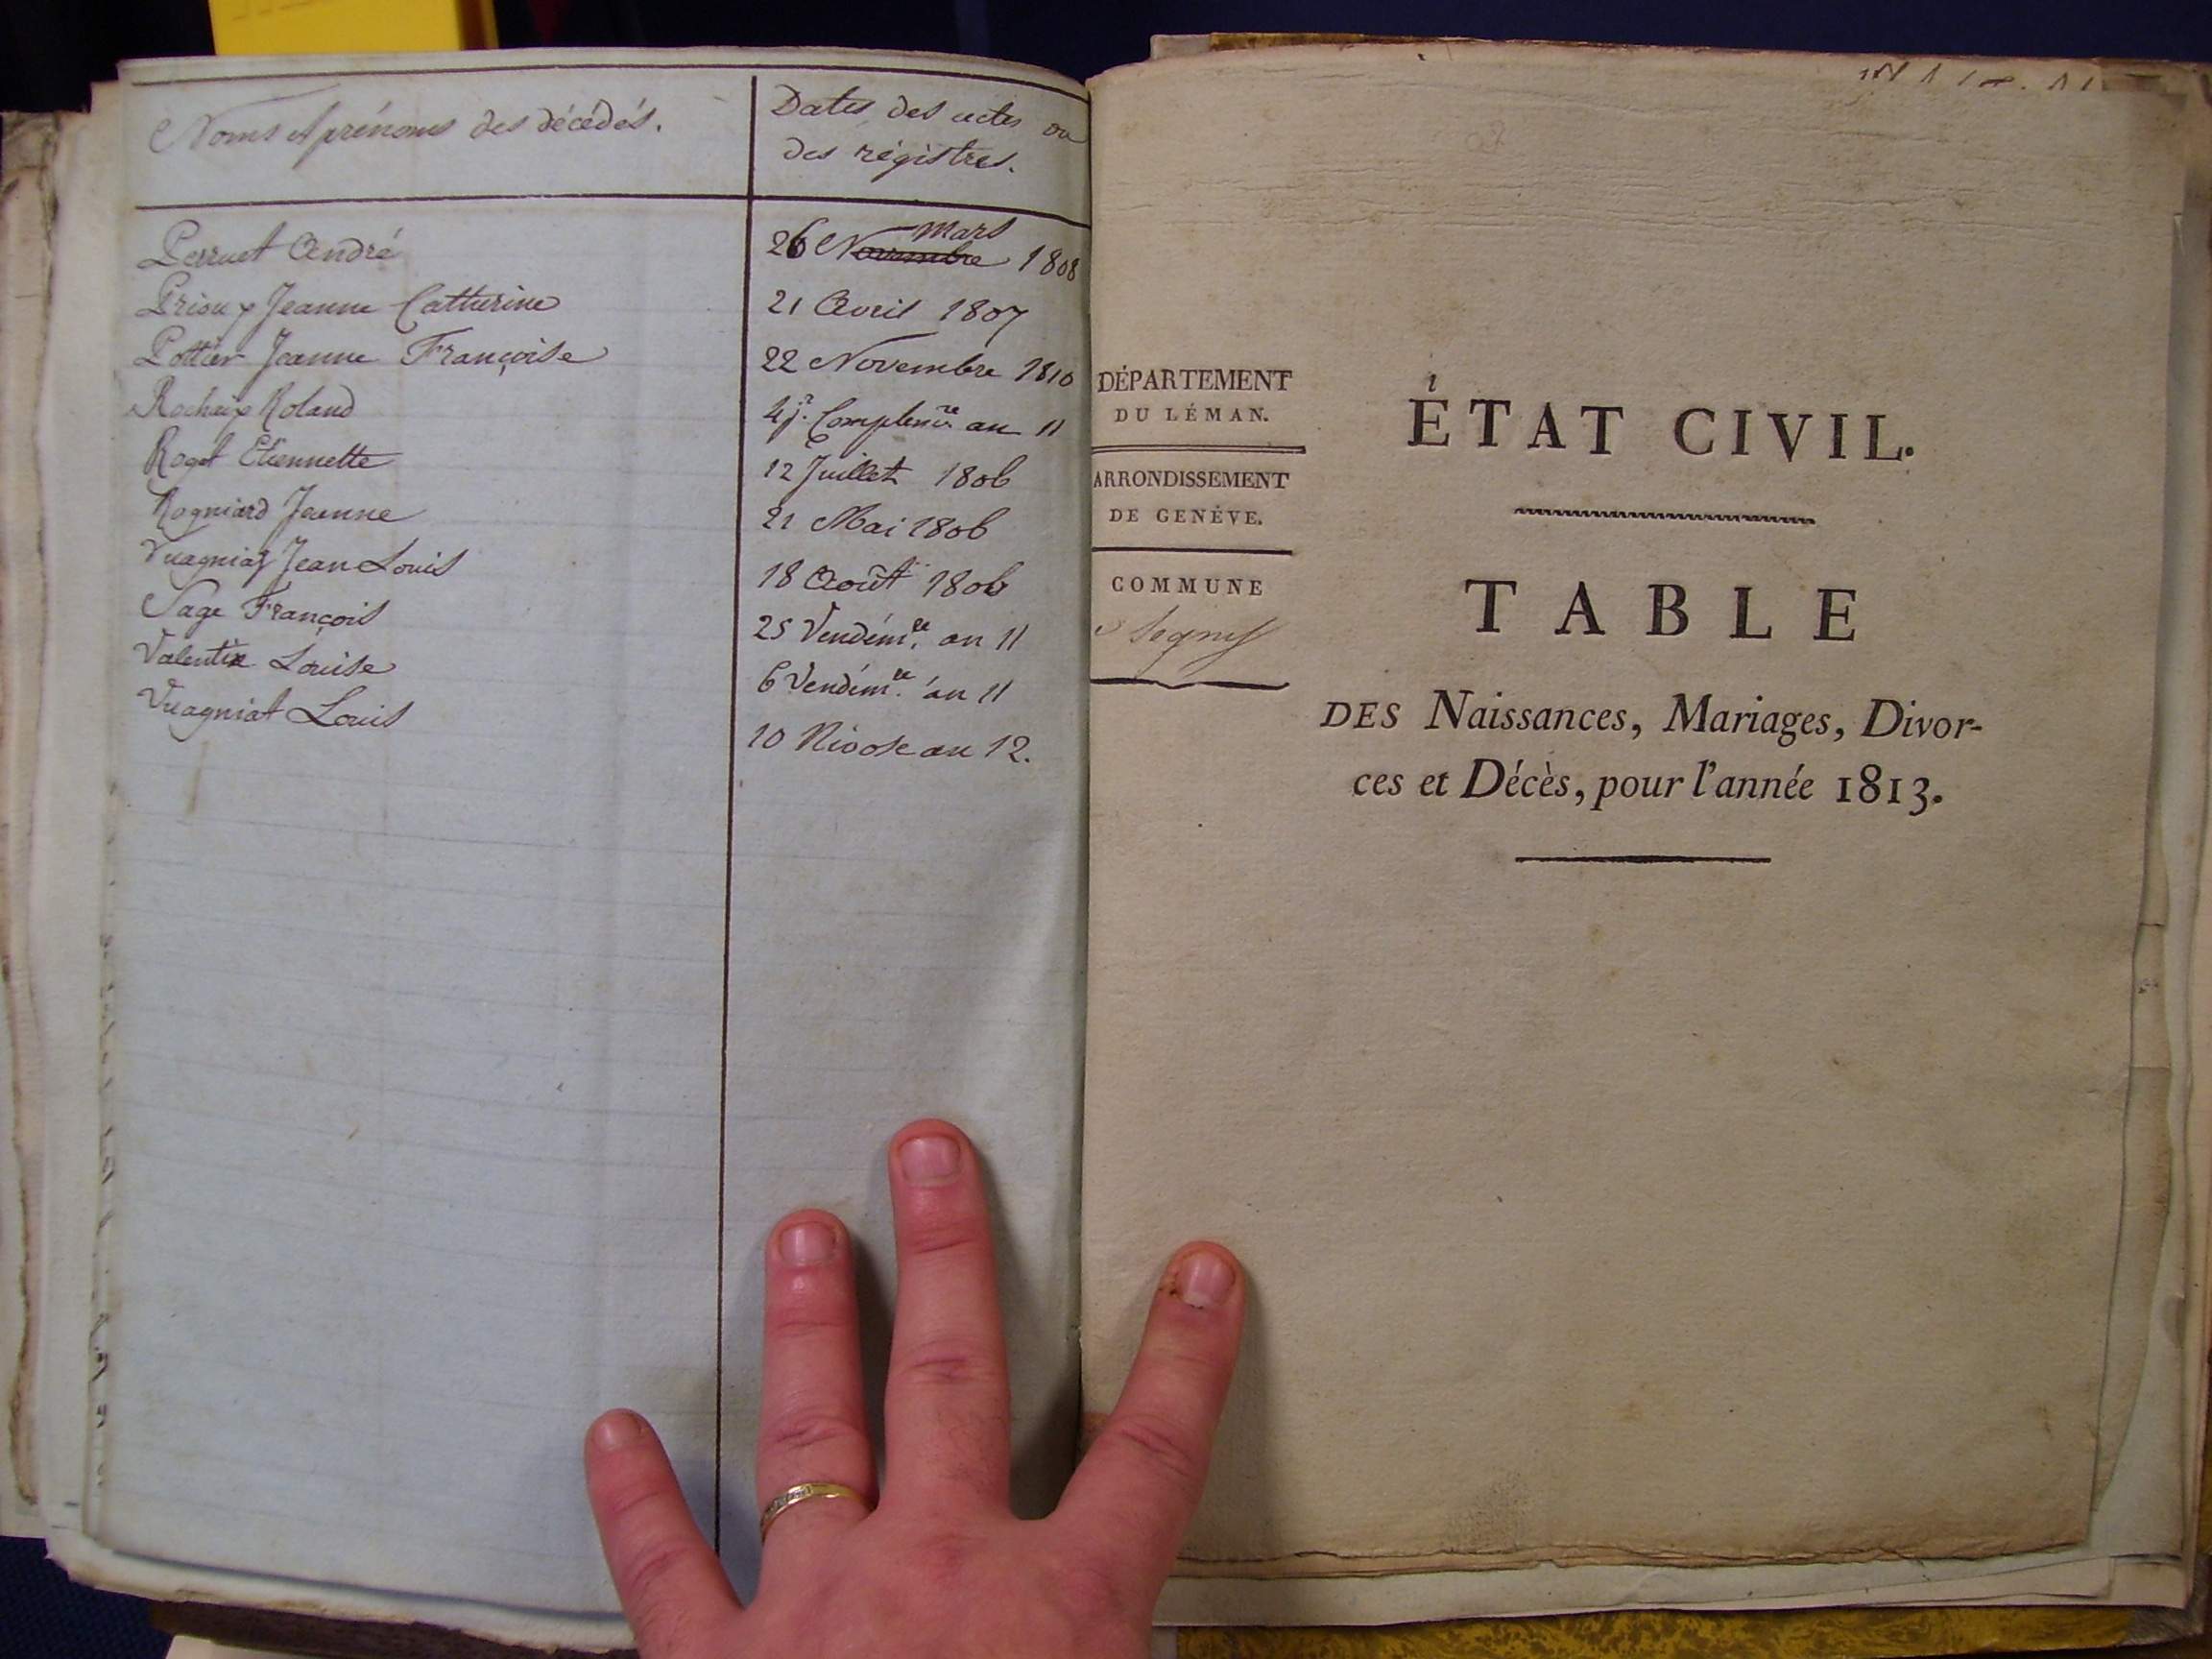 Noms et prénoms des décédés.
Dates des actes ou
des régistres.
Perruet André
26 Novembre Mars 1808
Prioux Jeanne Catherine
21 Avril 1807
Pottier Jeanne Françoise
22 Novembre 1810
Rochaix Roland
4 j.r Complem.re an 11
Roget Etiennette
12 Juillet 1806
Rogniard Jeanne
21 Mai 1806
Vuagniat Jean Louis
18 Août 1806
Sage François
25 Vendém.re an 11
Valentin Louise
6 Vendém.re an 11
Vuagniat Louis
10 Nivose an 12.
DÉPARTEMENT
DU LÉMAN.
ARRONDISSEMENT
DE GENÉVE.
COMMUNE
Segny
ÉTAT CIVIL.
TABLE
DES Naissances, Mariages, Divor-
ces et Décès, pour l'année 1813.